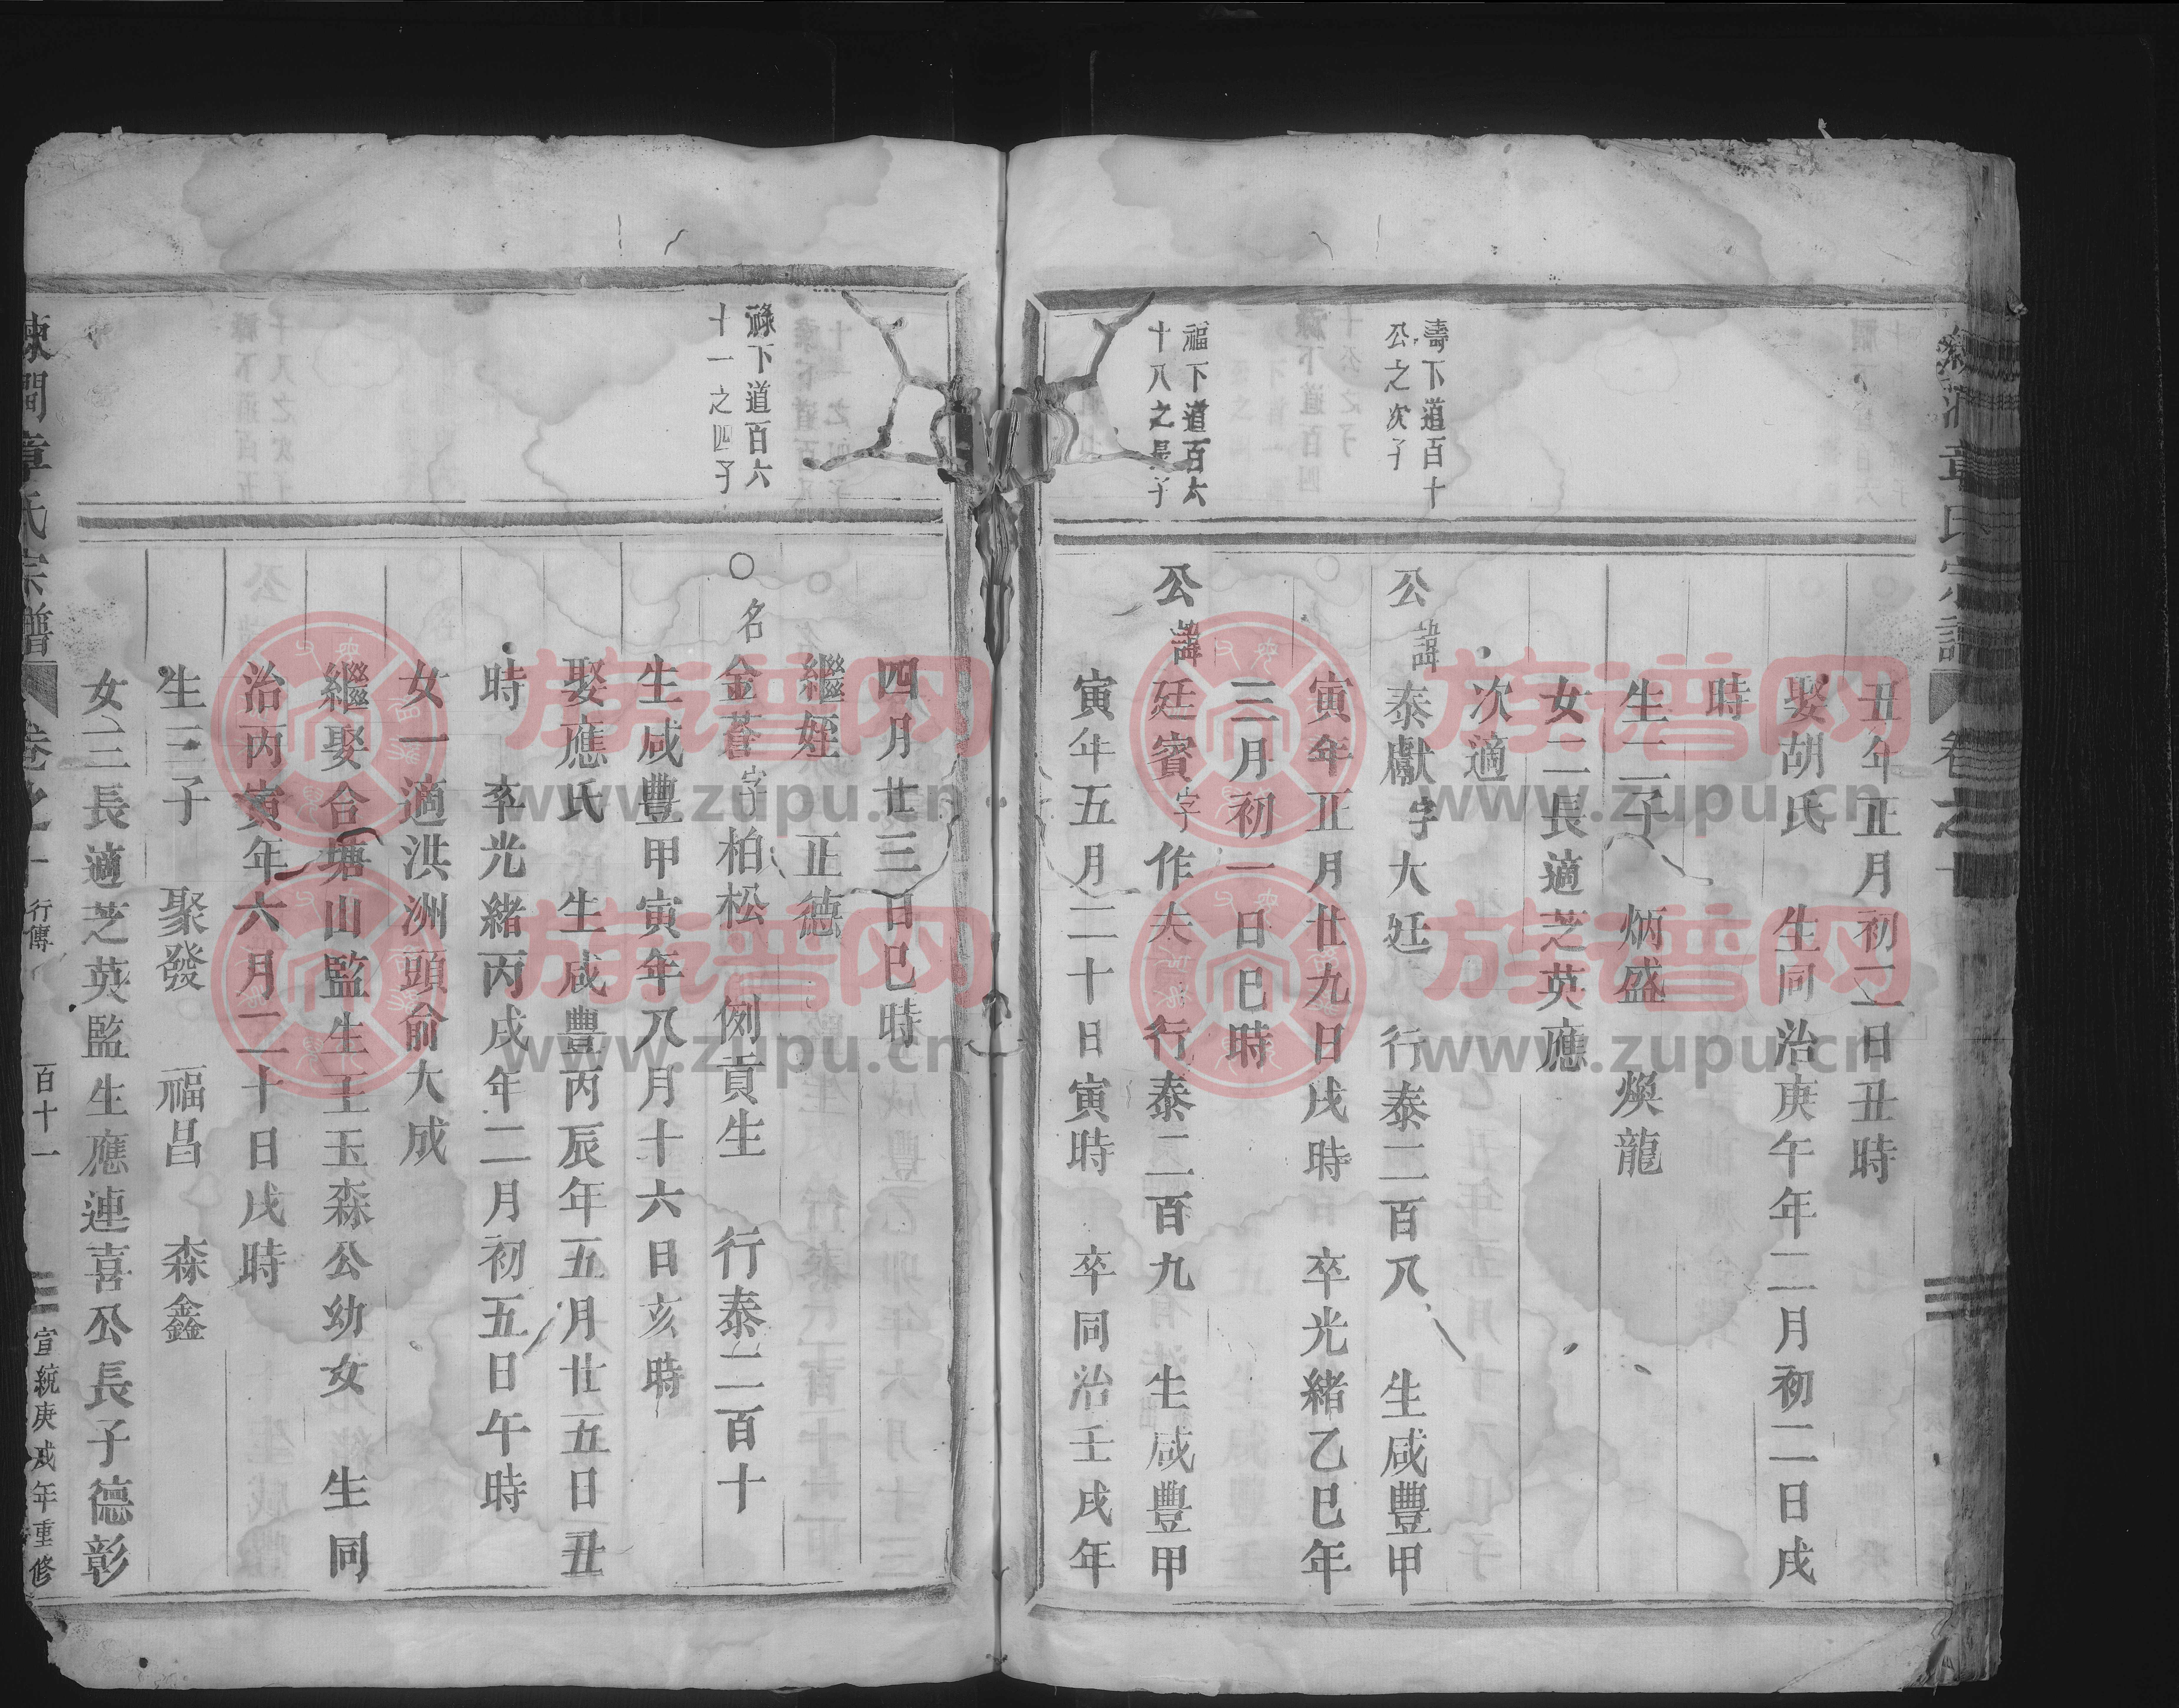 丑年正月初二日丑時
娶胡氏 生同治庚午年二月初二日戌
時
生二子 炳盛 煥龍
女二長適芝英應
次適
壽下道百十
公之次子
公諱泰獻字大廷 行泰二百八 生咸豐甲
寅年正月廿九日戌時 卒光緒乙巳年
三月初一日巳時
福下道百六
十八之長子
公諱廷賓字作夫 行泰二百九 生咸豐甲
寅年五月二十日寅時 卒同治壬戌年
四月廿三日巳時
繼姪 正德
祿下道百六
十一之四子
○名金蒼字柏松 例貢生 行泰二百十
生咸豐甲寅年八月十六日亥時
娶應氏 生咸豐丙辰年五月廿五日丑
時 卒光緒丙戌年二月初五日午時
女一適洪洲頭俞大成
繼娶合塘山監生王玉森公幼女 生同
治丙寅年六月二十日戌時
生三子 聚發 福昌 森鑫
女三長適芝英監生應連喜公長子德彰
章氏宗譜 卷之十 行傳 百十一 宣統庚戌年重修
族谱网
www.zupu.cn
族谱网
www.zupu.cn
族谱网
www.zupu.cn
族谱网
www.zupu.cn